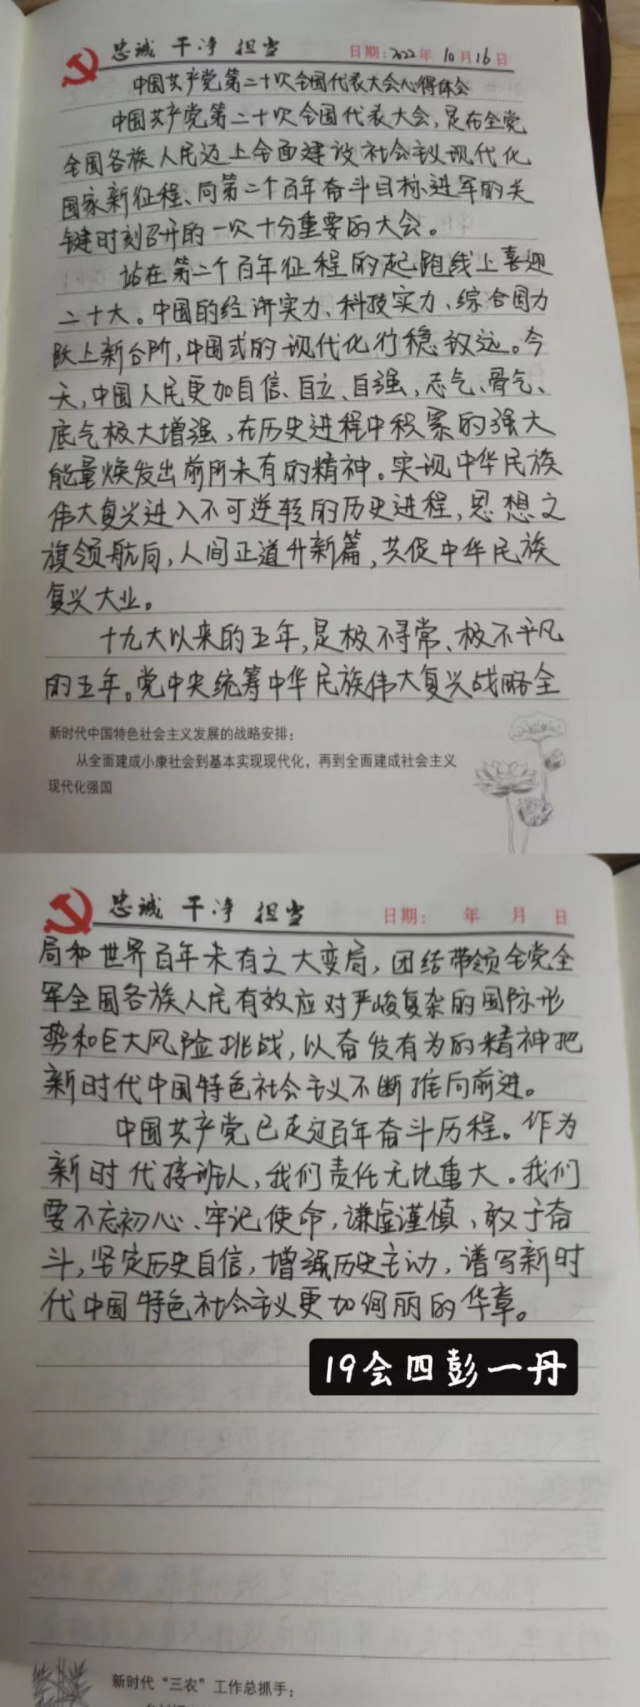 忠诚 干净 担当 日期: 2022年 10月16日
中国共产党第二十次全国代表大会心得体会
中国共产党第二十次全国代表大会，是在全党
全国各族人民迈上全面建设社会主义现代化
国家新征程、向第二个百年奋斗目标进军的关
键时刻召开的一次十分重要的大会。
站在第二个百年征程的起跑线上喜迎
二十大。中国的经济实力、科技实力、综合国力
跃上新台阶，中国式的现代化行稳致远。今
天，中国人民更加自信、自立、自强，志气、骨气、
底气极大增强，在历史进程中积累的强大
能量焕发出前所未有的精神。实现中华民族
伟大复兴进入不可逆转的历史进程，思想之
旗领航向，人间正道升新篇，共促中华民族
复兴大业。
十九大以来的五年，是极不寻常、极不平凡
的五年。党中央统筹中华民族伟大复兴战略全
新时代中国特色社会主义发展的战略安排：
从全面建成小康社会到基本实现现代化，再到全面建成社会主义
现代化强国
忠诚 干净 担当 日期: 年 月 日
局和世界百年未有之大变局，团结带领全党全
军全国各族人民有效应对严峻复杂的国际形
势和巨大风险挑战，以奋发有为的精神把
新时代中国特色社会主义不断推向前进。
中国共产党已走过百年奋斗历程。作为
新时代接班人，我们责任无比重大。我们
要不忘初心、牢记使命，谦虚谨慎、敢于奋
斗，坚定历史自信，增强历史主动，谱写新时
代中国特色社会主义更加绚丽的华章。
19会四彭一丹
新时代“三农”工作总抓手：